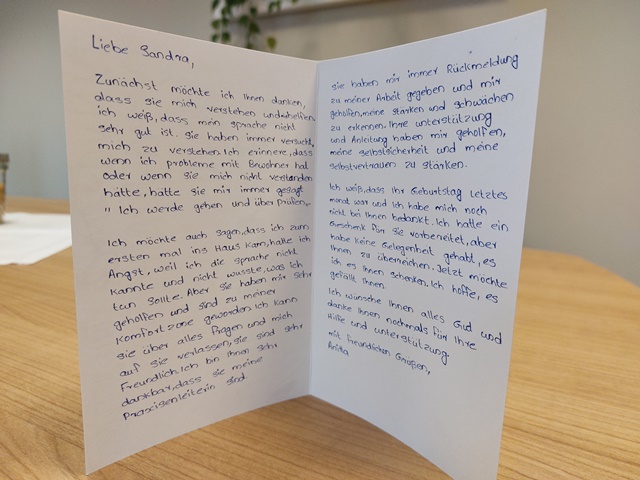 Liebe Sandra,
Zunächst möchte ich Ihnen danken,
dass sie mich verstehen und helfen
ich weiß, dass mein sprache nicht
sehr gut ist. sie haben immer versucht,
mich zu verstehen. Ich erinnere, dass
wenn ich probleme mit Bewohner hat
oder wenn sie mich nicht verstanden
hätte, hatte sie mir immer gesagt
" Ich werde gehen und über prüfen"
Ich möchte auch sagen, dass ich zum
ersten mal ins Haus kam, hatte ich
Angst, weil ich die sprache nicht
kannte und nicht wusste, was ich
tun sollte. Aber sie haben mir sehr
geholfen und sind zu meiner
Komfortzone geworden. Ich kann
sie über alles Fragen und mich
auf sie verlassen, sie sind sehr
Freundlich. Ich bin Ihnen sehr
dankbar, dass sie meine
Praxisenleiterin sind
sie haben mir immer Rückmeldung
zu meiner Arbeit gegeben und mir
geholfen, meine stärken und schwächen
zu erkennen. Ihre unterstützung
und Anleitung haben mir geholfen,
meine selbstsicherheit und meine
selbstvertrauen zu stärken.
Ich weiß, dass Ihr Geburtstag letztes
monat war und ich habe mich noch
nicht bei Ihnen bedankt. Ich hatte ein
Geschenk für sie vorbereitet, aber
habe keine Gelegenheit gehabt, es
Ihnen zu überreichen. Jetzt möchte
ich es Ihnen schenken. Ich hoffe, es
gefällt Ihnen.
Ich wünsche Ihnen alles Gud und
danke Ihnen nochmals für Ihre
Hilfe und unterstützung.
mit freundlichen Grüßen,